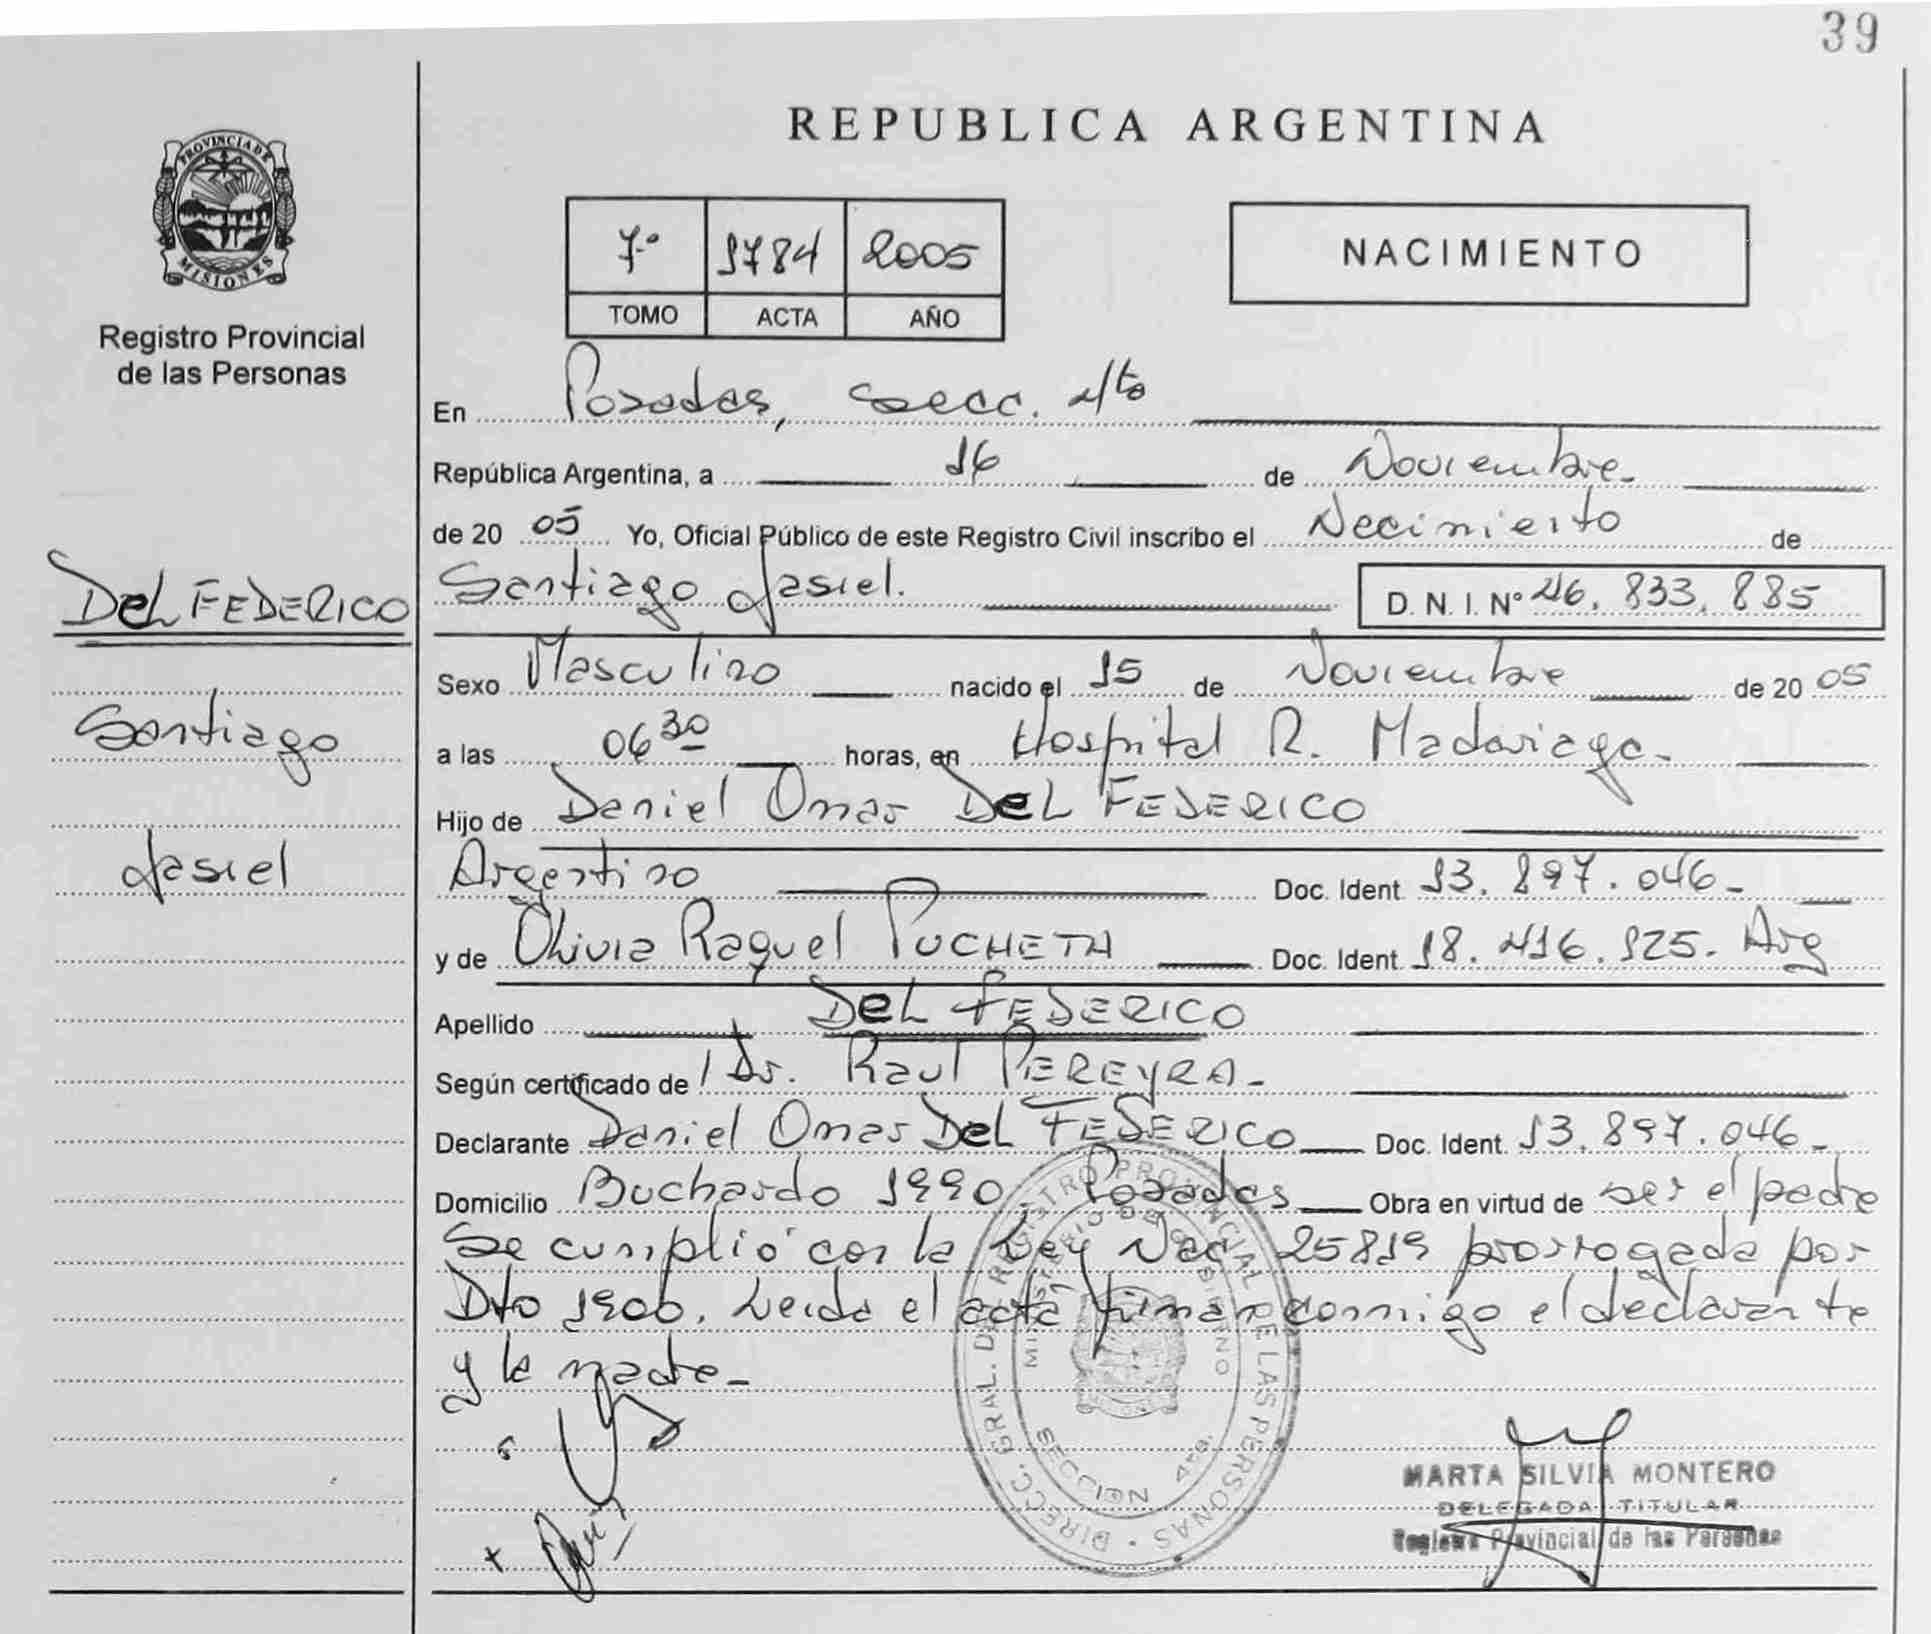 39
PROVINCIA DE
MISIONES
Registro Provincial
de las Personas
REPUBLICA ARGENTINA
7º 1784 2005
TOMO ACTA AÑO
NACIMIENTO
En Posadas, Secc. 4/ta
República Argentina, a 16 de Noviembre
de 20 05 Yo, Oficial Público de este Registro Civil inscribo el Nacimiento de
Santiago Jasiel. D. N. I. Nº 46. 833. 885
DeL FEDERICO
Santiago
Jasiel
Sexo Masculino nacido el 15 de Noviembre de 20 05
a las 06 30 horas, en Hospital R. Madariaga
Hijo de Daniel Omar DeL FEDERICO
Argentino Doc. Ident. 13. 897. 046
y de Olivia Raquel PUCHETA Doc. Ident. 18. 416. 125. Arg
Apellido DeL FEDERICO
Según certificado de Dr. Raul PEREYRA
Declarante Daniel Omar DeL FEDERICO Doc. Ident. 13. 897. 046
Domicilio Buchardo 1990 Posadas Obra en virtud de ser el padre
Se cumplió con la Ley Nac 25819 prorrogada por
Dto 1900. Leida el acta firman conmigo el declarante
y la madre
DIRECC. GRAL. DEL REGISTRO PROVINCIAL DE LAS PERSONAS
MINISTERIO DE GOBIERNO
SECCION 4ta.
MARTA SILVIA MONTERO
DELEGADA TITULAR
Registro Provincial de las Personas